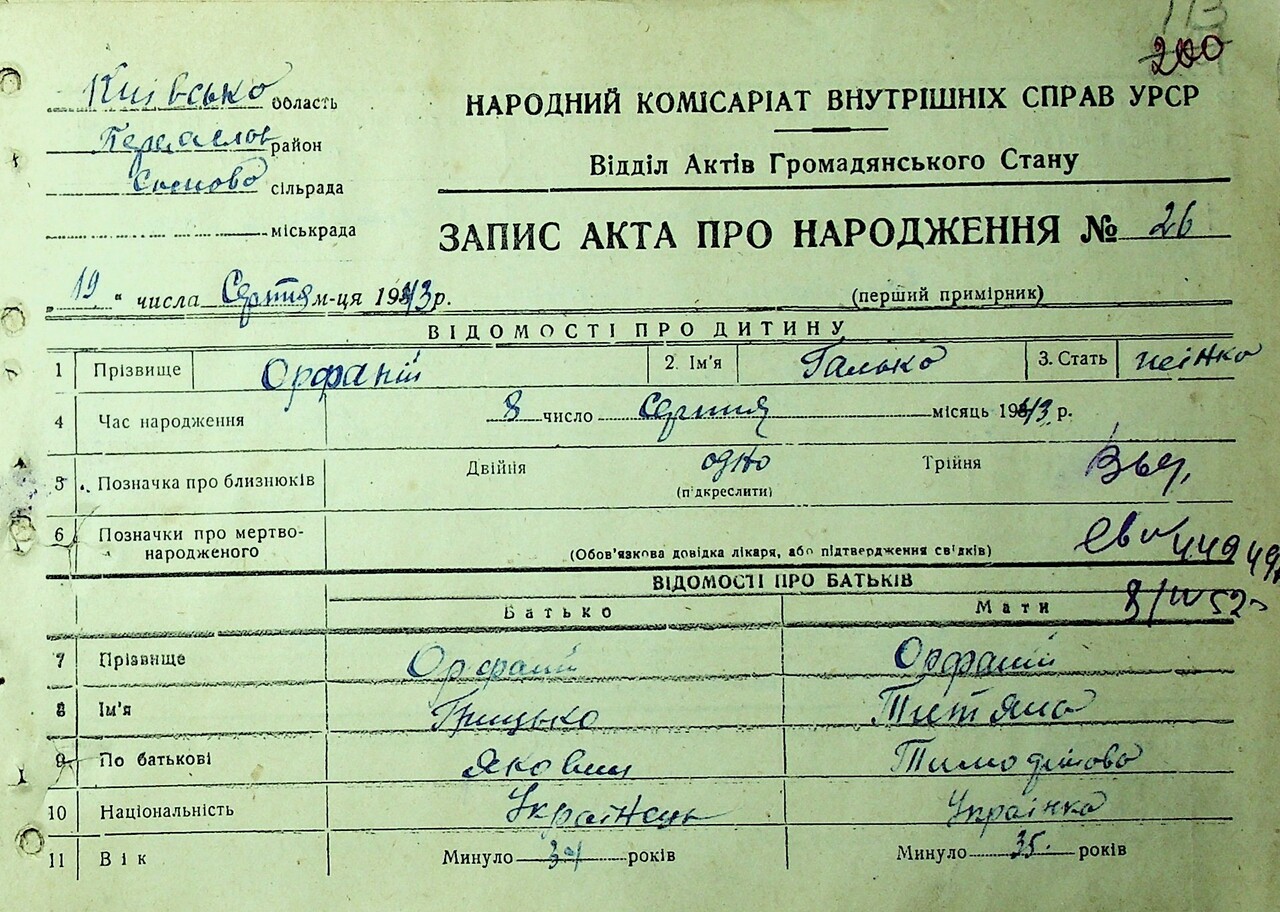 113
200
Київсько область
Переаслав район
сільрада
міськрада
НАРОДНИЙ КОМІСАРІАТ ВНУТРІШНІХ СПРАВ УРСР
Відділ Актів Громадянського Стану
ЗАПИС АКТА ПРО НАРОДЖЕННЯ № 26
19 " числа Серпня м-ця 1943 р.
(перший примірник)
ВІДОМОСТІ ПРО ДИТИНУ
1 Прізвище Орфаній 2. Ім'я Галько 3. Стать жінко
4 Час народження 8 число Серпня місяць 1943 р.
5 Позначка про близнюків Двійня одно Трійня
(підкреслити)
6 Позначки про мертво-
народженого
(Обов'язкова довідка лікаря, або підтвердження свідків)
ВІДОМОСТІ ПРО БАТЬКІВ
Батько Мати 8/IV 52
7 Прізвище Орфаній Орфаній
8 Ім'я Грицько Титяно
9 По батькові Якович Тимофіїово
10 Національність Українець Українка
11 Вік Минуло років Минуло 35. років